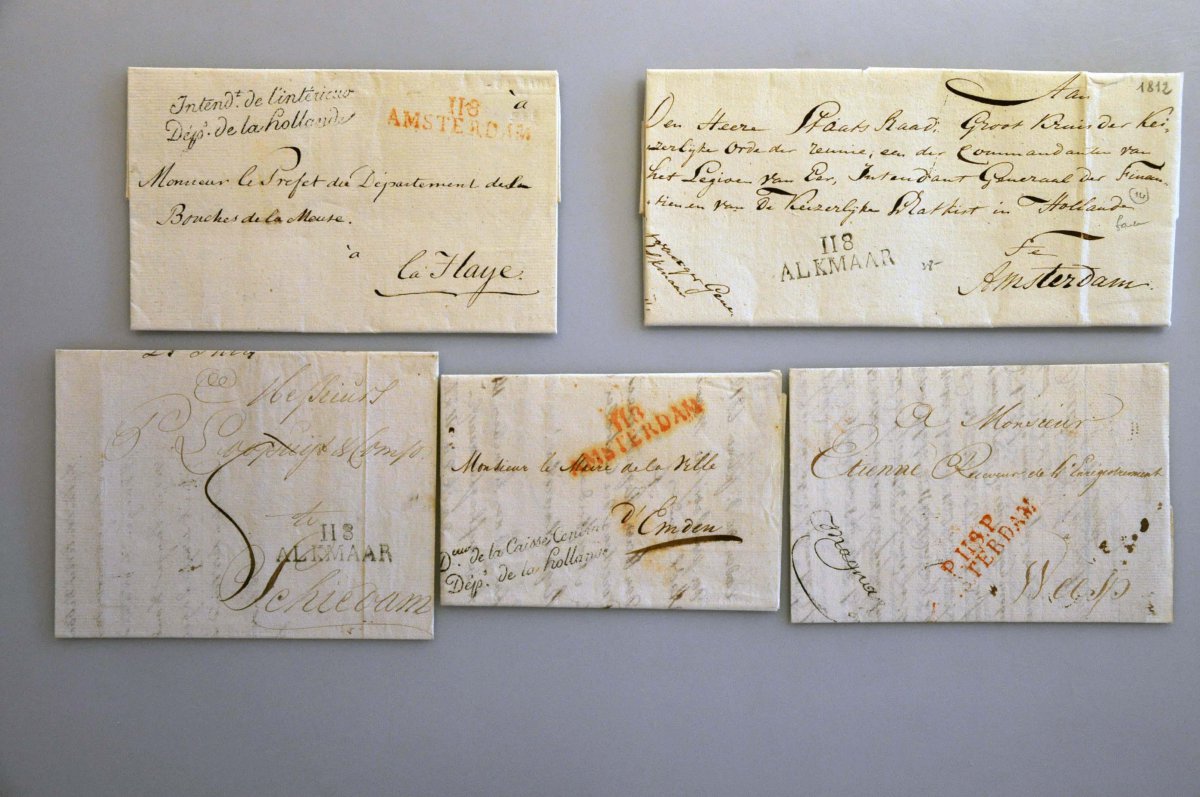 Intend.t de l'intérieur
Dép.t de la hollande
118
AMSTERDAM
à
Monsieur le Préfet du Département de la
Bouches de la Meuse.
à
la Haye.
1812
Aan
Den Heere Staats Raad. Groot Kruis der Kei-
zerlyke Orde der reunie, een der Commandanten van
het Legioen van Eer, Intendant Generaal der Finan-
tien en van De Keizerlyke Schatkist in Holland
118
ALKMAAR
Te
Amsterdam.
Messieurs
& Comp.
te
118
ALKMAAR
Schiedam
118
AMSTERDAM
Monsieur le Maire de la Ville
d'Emden
de la Caisse Central
Dép.t de la hollande
A Monsieur
Etienne Receveur de l'Enregistrement
P 118 P
TERDAM
Weesp